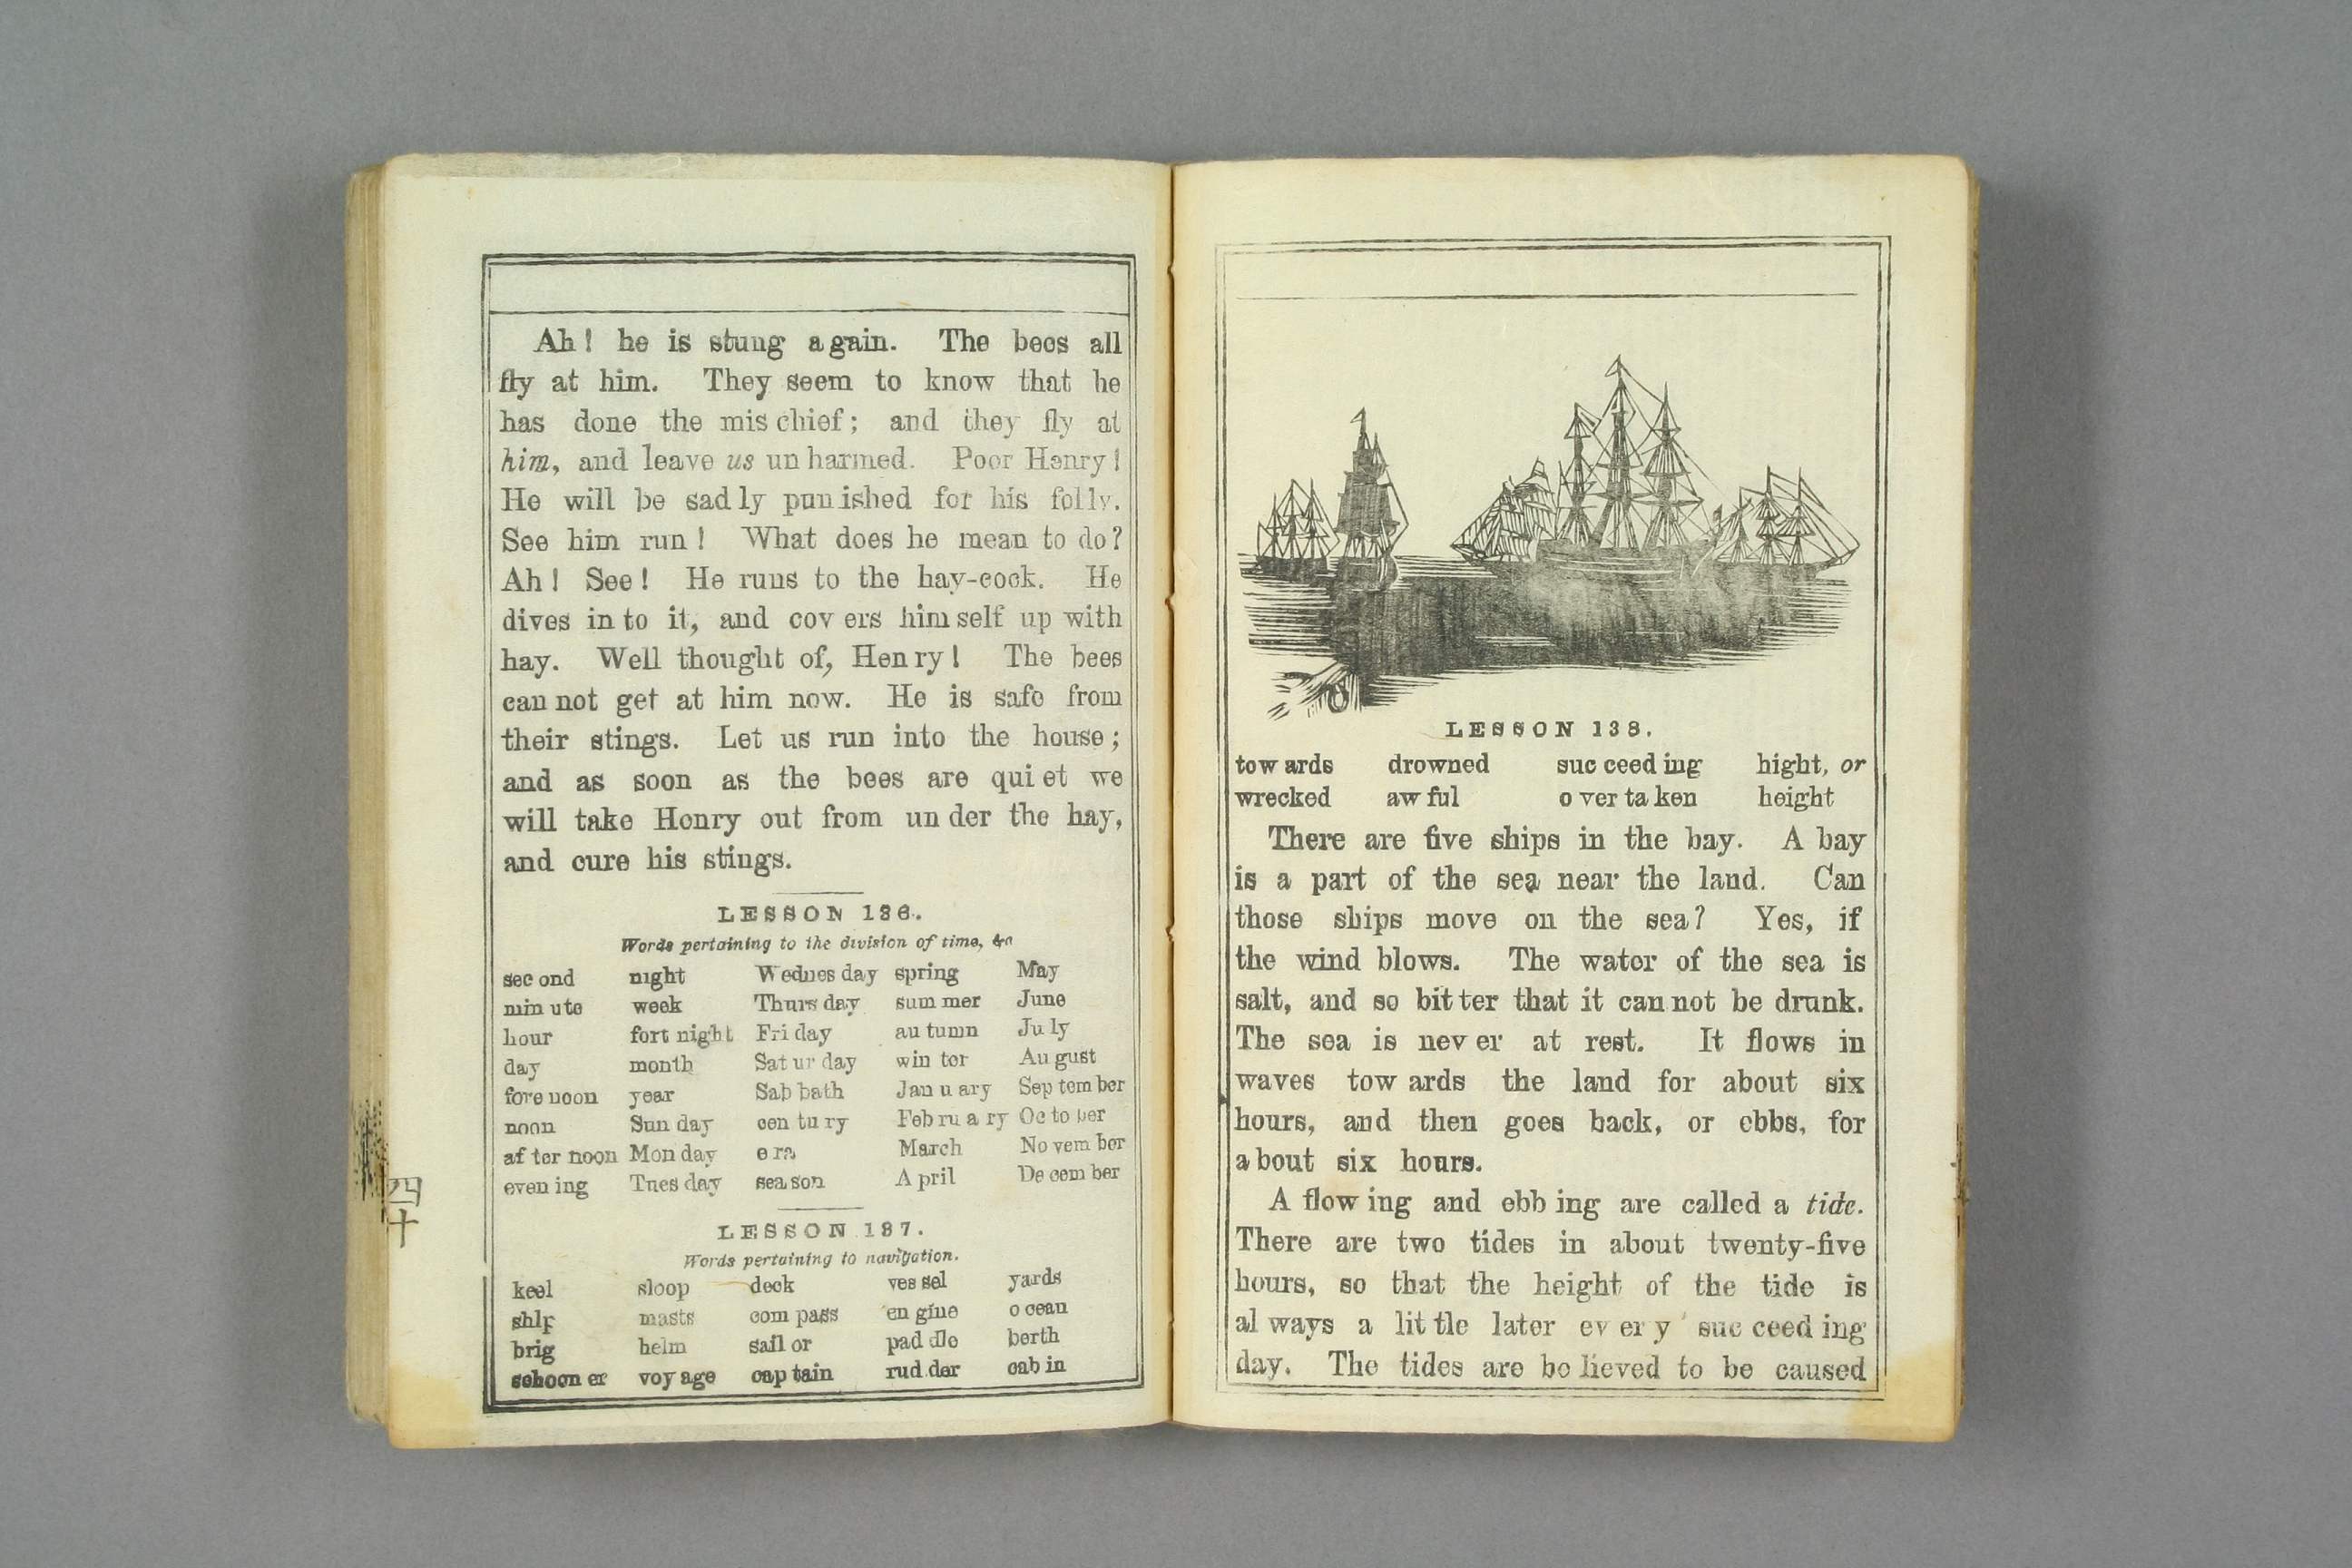 Ah! he is stung a gain. The bees all
fly at him. They seem to know that he
has done the mis chief; and they fly at
him, and leave us un harmed. Poor Henry!
He will be sad ly pun ished for his folly.
See him run! What does he mean to do?
Ah! See! He runs to the hay-cock. He
dives in to it, and cov ers him self up with
hay. Well thought of, Hen ry! The bees
can not get at him now. He is safe from
their stings. Let us run into the house;
and as soon as the bees are qui et we
will take Henry out from un der the hay,
and cure his stings.
LESSON 136.
Words pertaining to the division of time, &c
sec ond night Wednes day spring May
min ute week Thurs day sum mer June
hour fort night Fri day au tumn Ju ly
day month Sat ur day win ter Au gust
fore noon year Sab bath Jan u ary Sep tem ber
noon Sun day cen tu ry Feb ru a ry Oc to ber
af ter noon Mon day e ra March No vem ber
even ing Tues day sea son A pril De cem ber
LESSON 137.
Words pertaining to navigation.
keel sloop deck ves sel yards
ship masts com pass en gine o cean
brig helm sail or pad dle berth
schoon er voy age cap tain rud der cab in
四十
LESSON 138.
tow ards drowned suc ceed ing hight, or
wrecked aw ful o ver ta ken height
There are five ships in the bay. A bay
is a part of the sea near the land. Can
those ships move on the sea? Yes, if
the wind blows. The water of the sea is
salt, and so bit ter that it can not be drunk.
The sea is nev er at rest. It flows in
waves tow ards the land for about six
hours, and then goes back, or ebbs, for
a bout six hours.
A flow ing and ebb ing are called a tide.
There are two tides in about twenty-five
hours, so that the height of the tide is
al ways a lit tle later ev er y suc ceed ing
day. The tides are be lieved to be caused